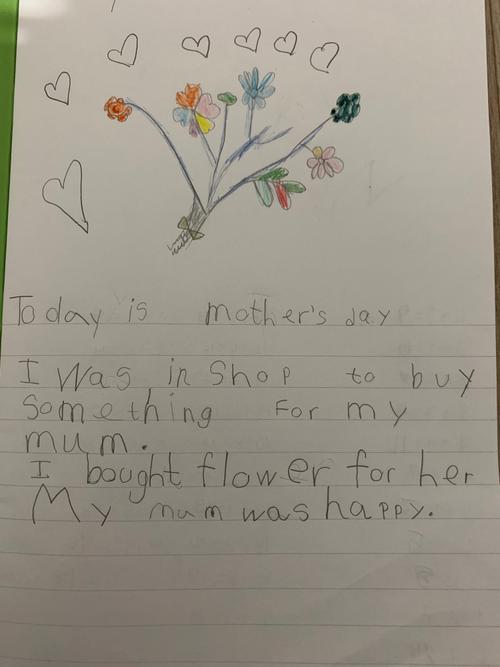 Today is mother's day
I was in shop to buy
something For my
mum.
I bought flower for her
My mum was happy.